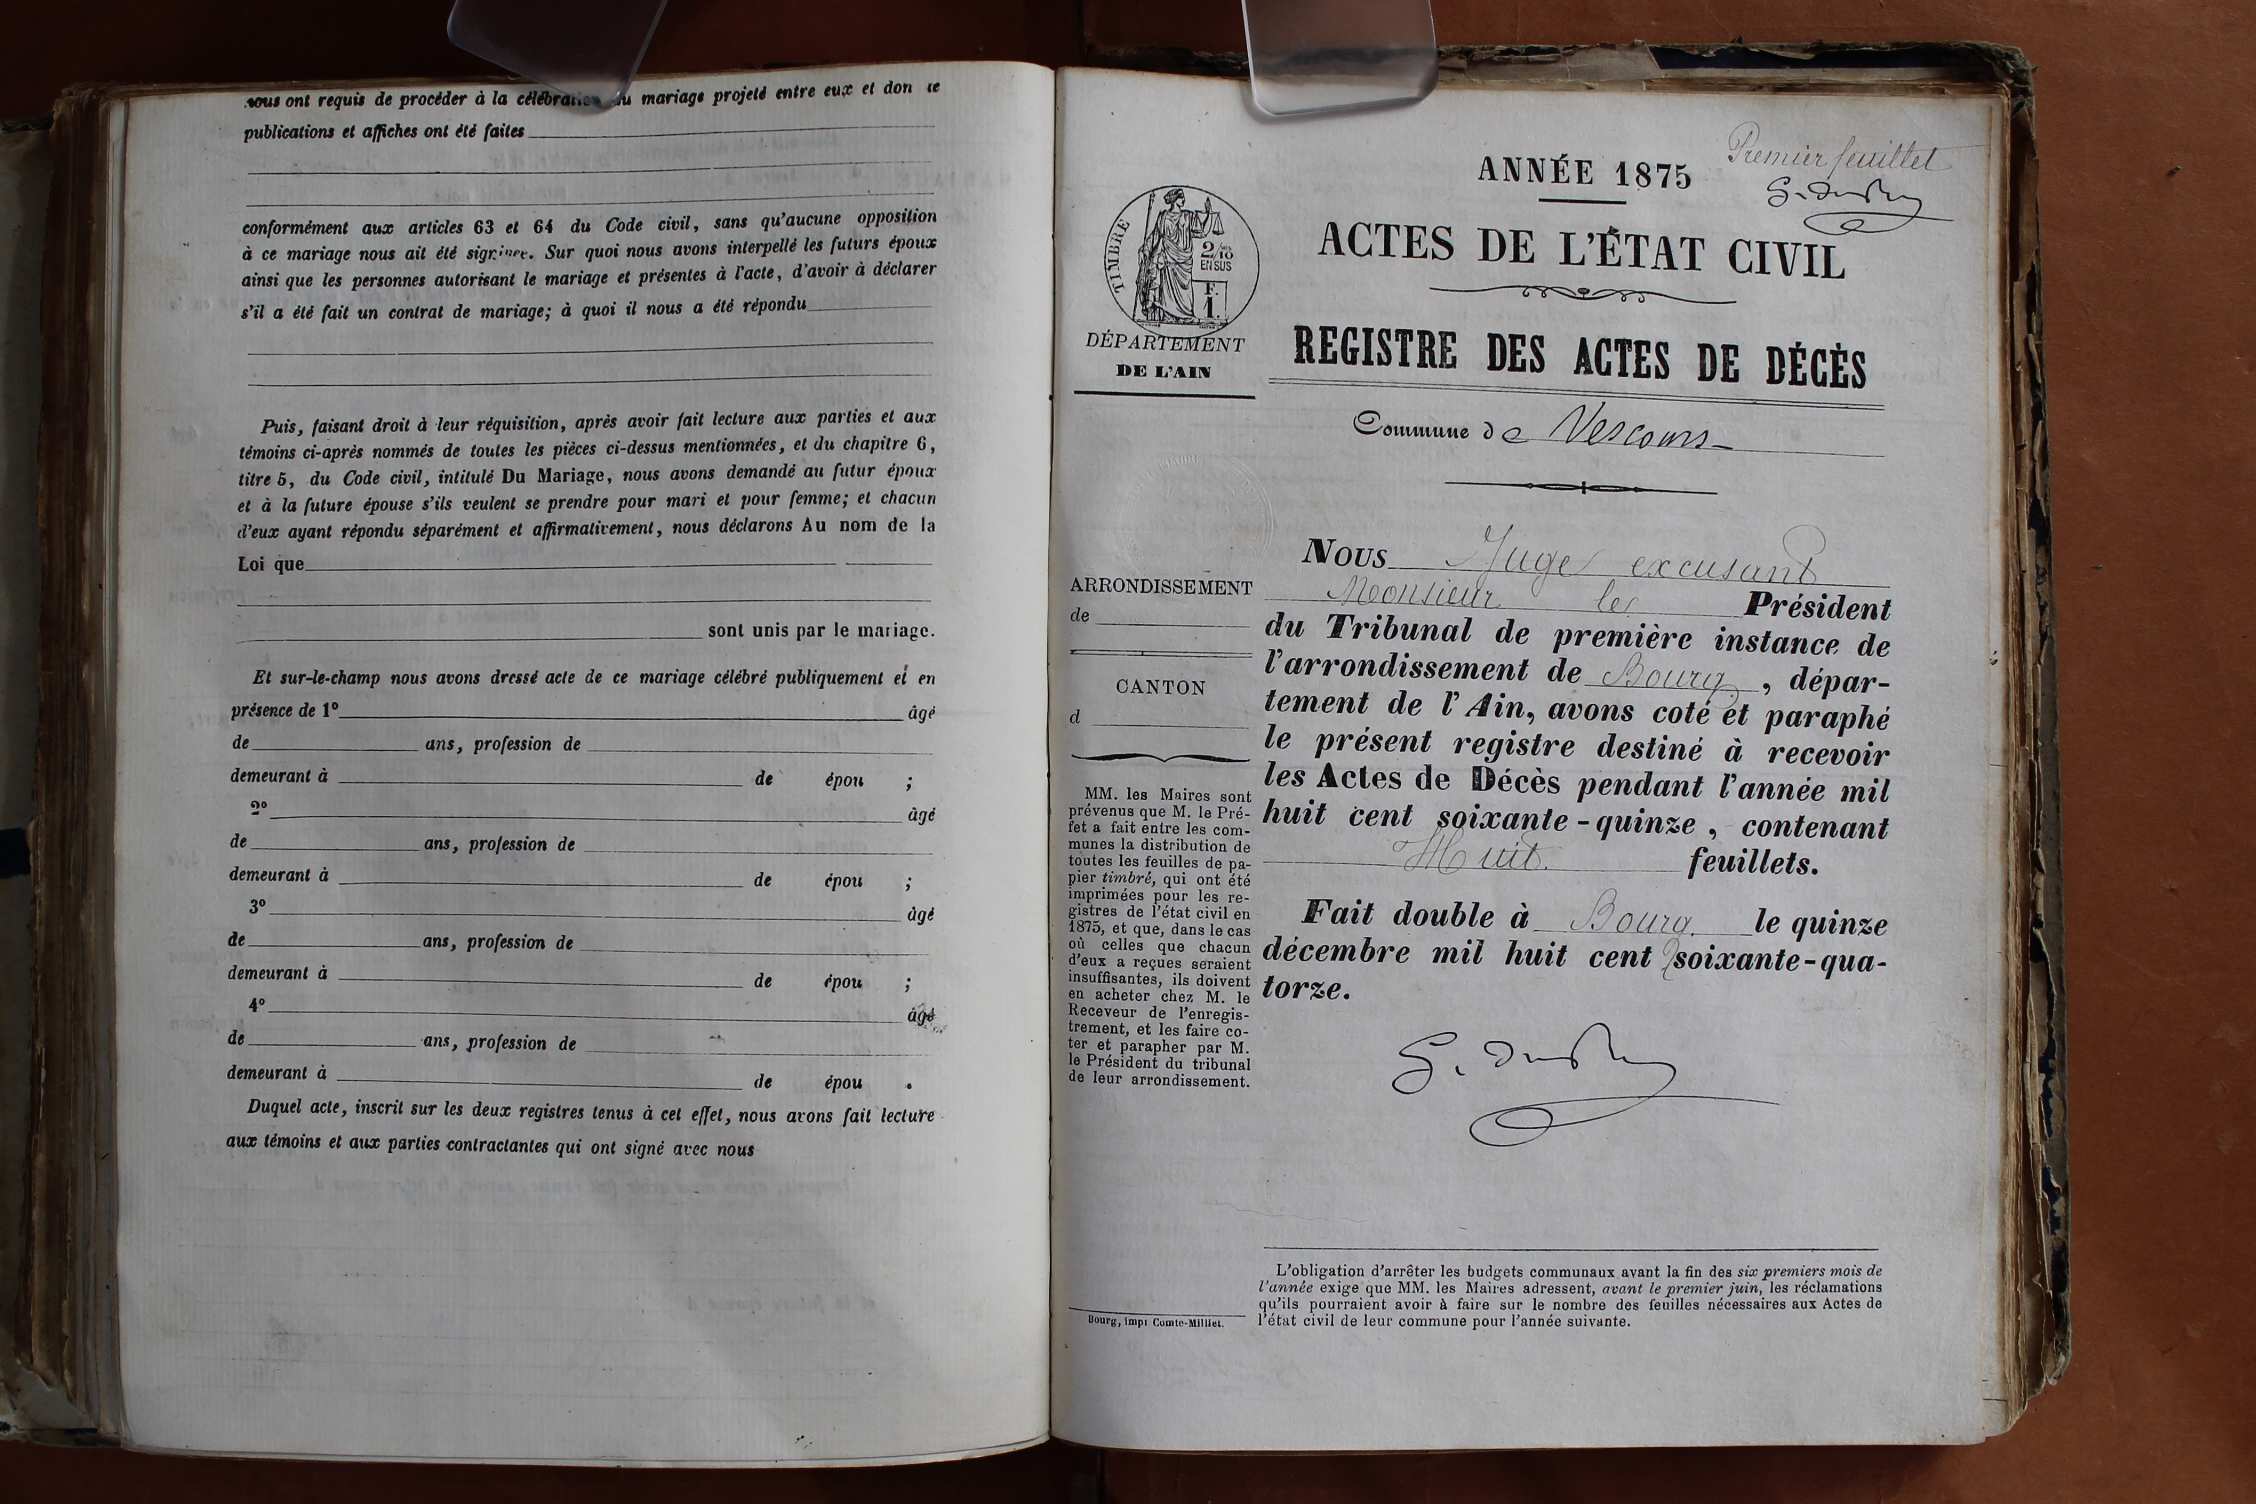 nous ont requis de procéder à la célébration du mariage projeté entre eux et don
publications et affiches ont été faites
conformément aux articles 63 et 64 du Code civil, sans qu'aucune opposition
à ce mariage nous ait été signifiée. Sur quoi nous avons interpellé les futurs époux
ainsi que les personnes autorisant le mariage et présentes à l'acte, d'avoir à déclarer
s'il a été fait un contrat de mariage; à quoi il nous a été répondu
Puis, faisant droit à leur réquisition, après avoir fait lecture aux parties et aux
témoins ci-après nommés de toutes les pièces ci-dessus mentionnées, et du chapitre 6,
titre 5, du Code civil, intitulé Du Mariage, nous avons demandé au futur époux
et à la future épouse s'ils veulent se prendre pour mari et pour femme; et chacun
d'eux ayant répondu séparément et affirmativement, nous déclarons Au nom de la
Loi que
sont unis par le mariage.
Et sur-le-champ nous avons dressé acte de ce mariage célébré publiquement et en
présence de 1° âgé
de ans, profession de
demeurant à de épou ;
2° âgé
de ans, profession de
demeurant à de épou ;
3° âgé
de ans, profession de
demeurant à de épou ;
4° âgé
de ans, profession de
demeurant à de épou .
Duquel acte, inscrit sur les deux registres tenus à cet effet, nous avons fait lecture
aux témoins et aux parties contractantes qui ont signé avec nous
Premier feuillet
ANNÉE 1875
ACTES DE L'ÉTAT CIVIL
TIMBRE
2/10
EN SUS
F.
1.
DÉPARTEMENT
DE L'AIN
REGISTRE DES ACTES DE DÉCÈS
Commune de Vescours
ARRONDISSEMENT
de
CANTON
d
MM. les Maires sont
prévenus que M. le Pré-
fet a fait entre les com-
munes la distribution de
toutes les feuilles de pa-
pier timbré, qui ont été
imprimées pour les re-
gistres de l'état civil en
1875, et que, dans le cas
où celles que chacun
d'eux a reçues seraient
insuffisantes, ils doivent
en acheter chez M. le
Receveur de l'enregis-
trement, et les faire co-
ter et parapher par M.
le Président du tribunal
de leur arrondissement.
Bourg, impr Comte-Milliet.
NOUS Juge excusant
Monsieur le Président
du Tribunal de première instance de
l'arrondissement de Bourg, dépar-
tement de l'Ain, avons coté et paraphé
le présent registre destiné à recevoir
les Actes de Décès pendant l'année mil
huit cent soixante-quinze, contenant
Huit feuillets.
Fait double à Bourg le quinze
décembre mil huit cent soixante-qua-
torze.
L'obligation d'arrêter les budgets communaux avant la fin des six premiers mois de
l'année exige que MM. les Maires adressent, avant le premier juin, les réclamations
qu'ils pourraient avoir à faire sur le nombre des feuilles nécessaires aux Actes de
l'état civil de leur commune pour l'année suivante.